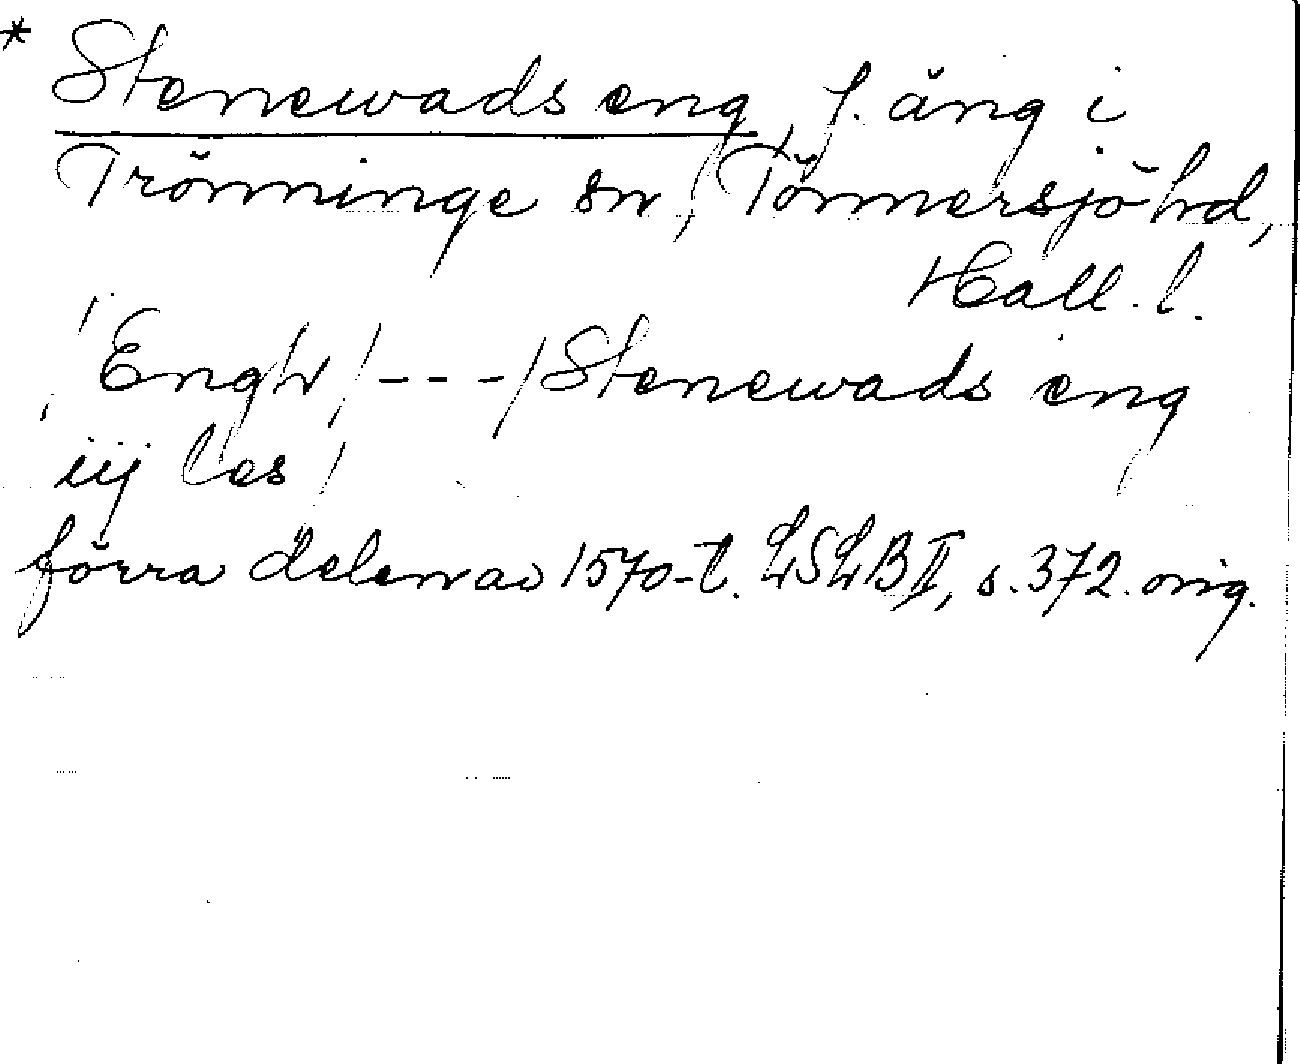 * Stenewads eng, f. äng i
Trönninge sn, Tönnersjö hd,
Hall. l.
/Engh/ /---/ Stenewads eng
iij les/
förra delen av 1570-t. LSLB II, s. 372. orig.